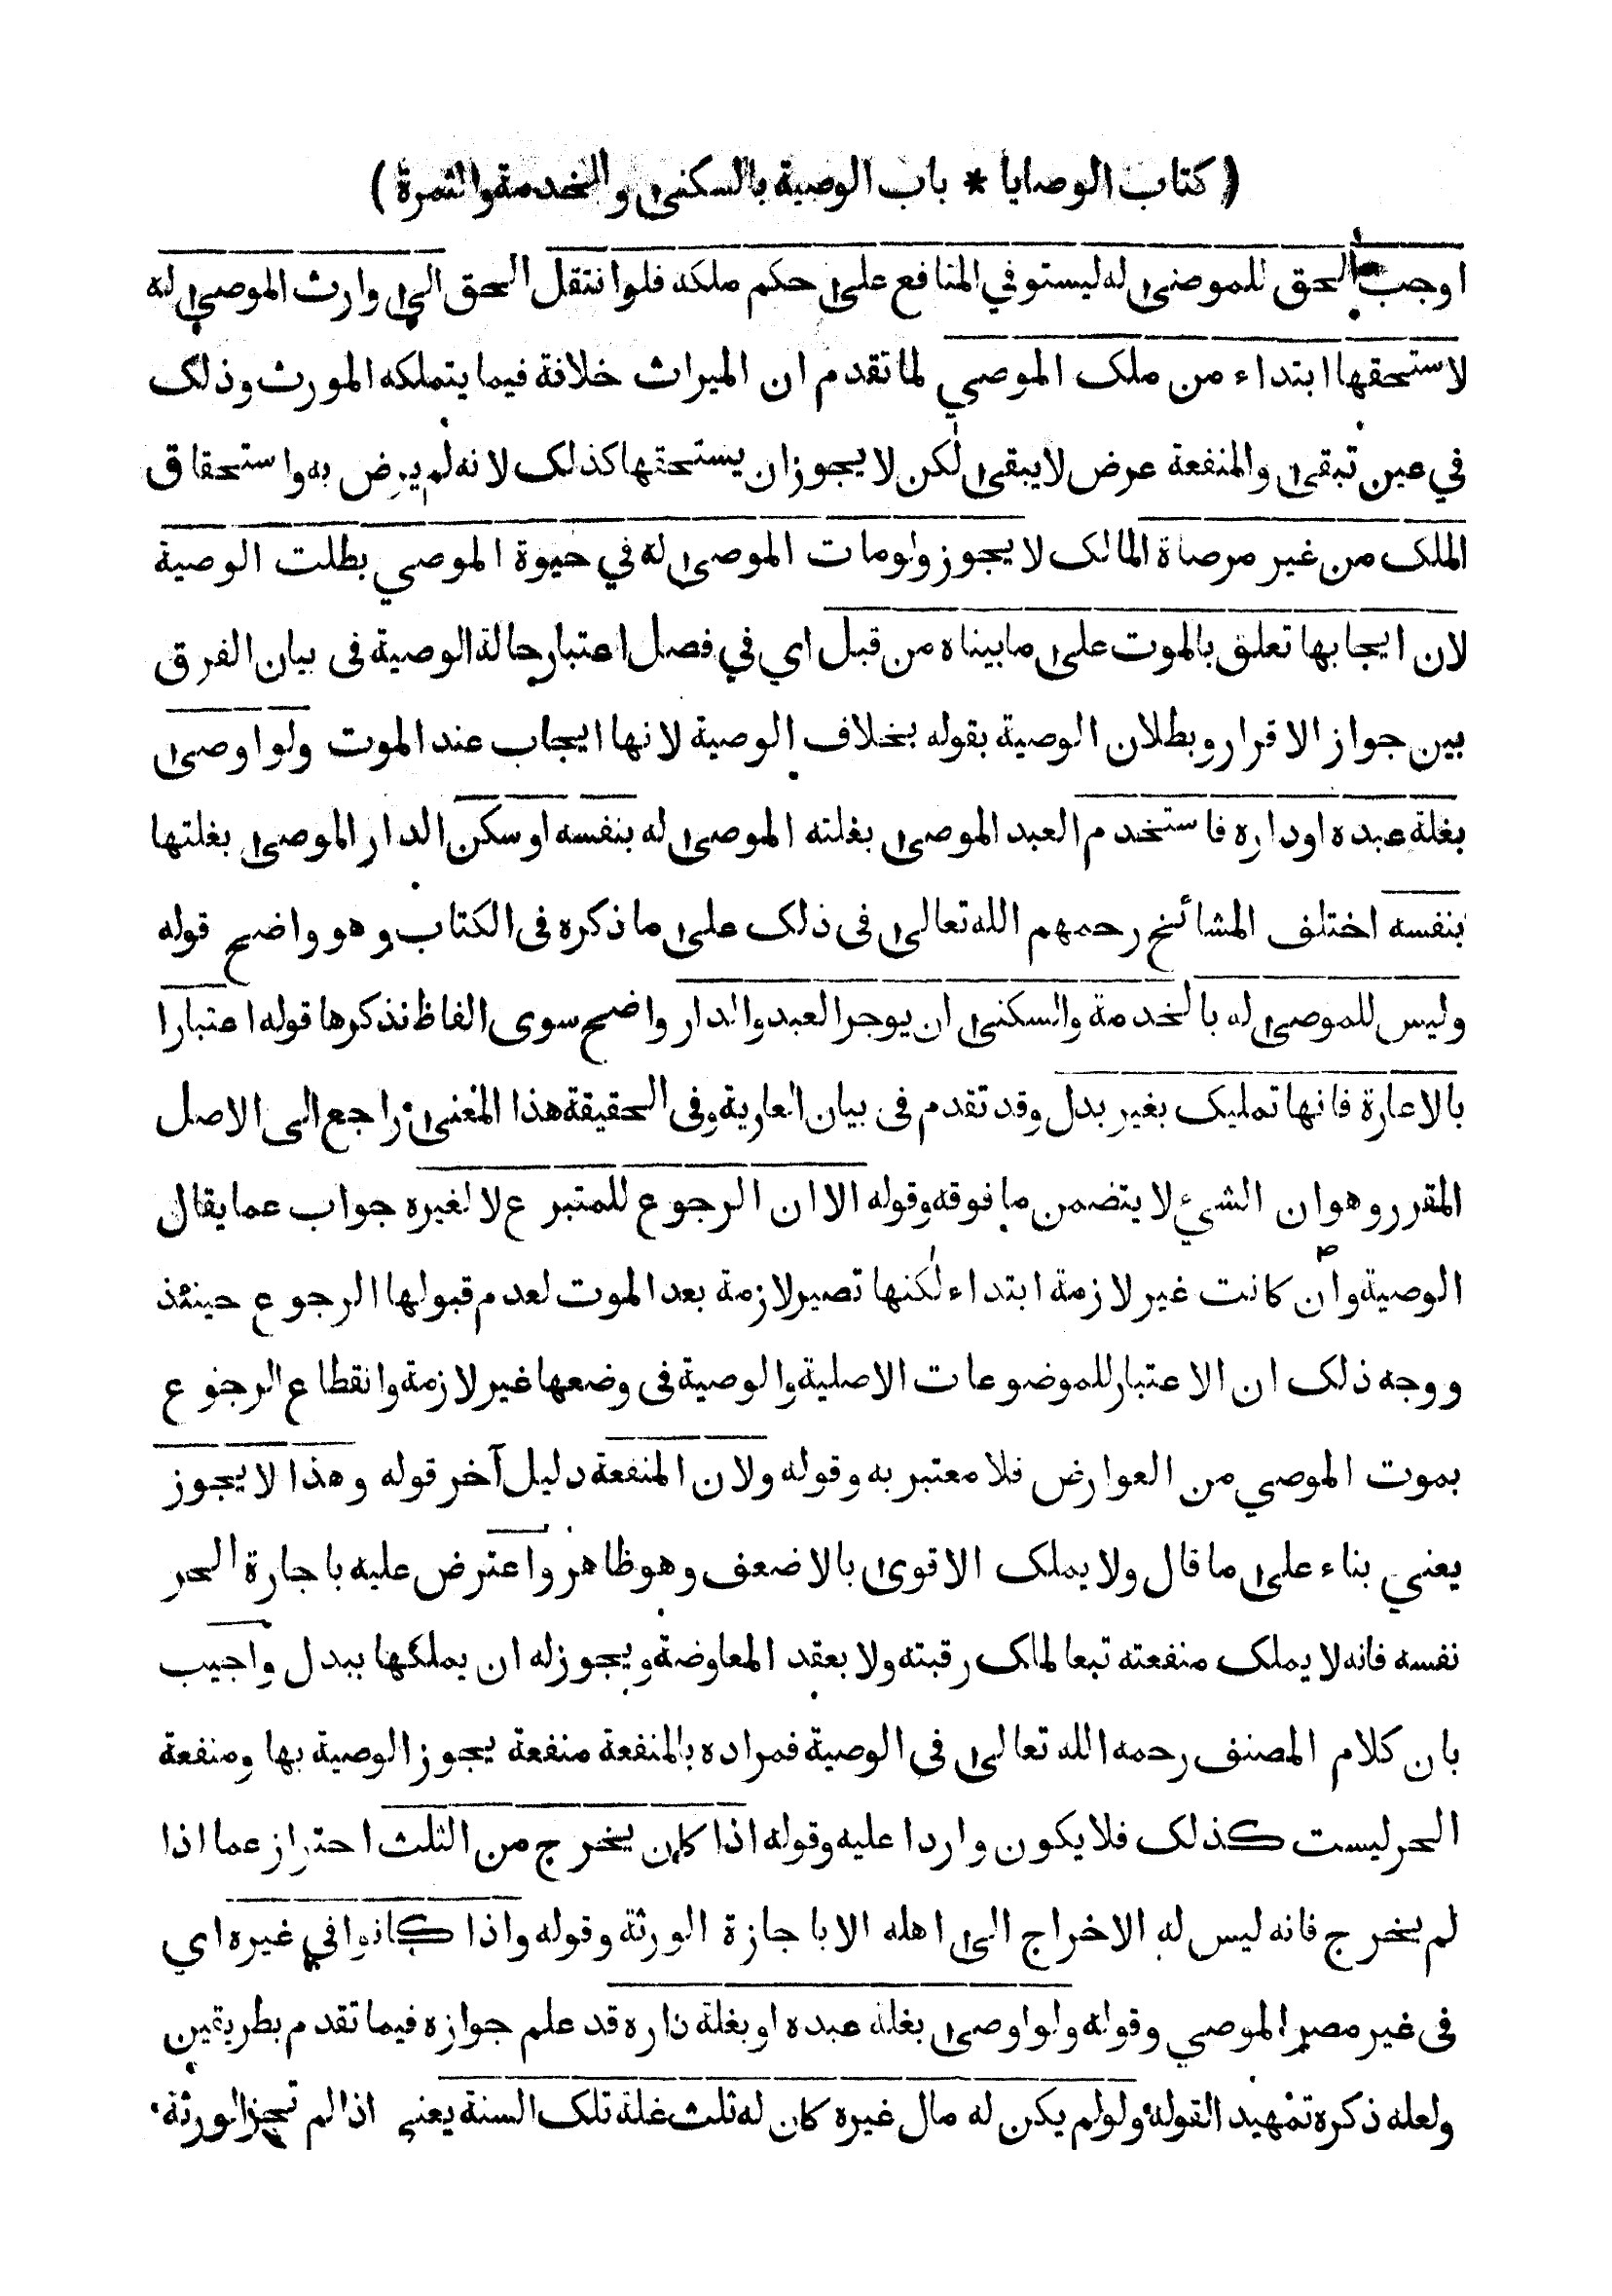 ( كتاب الوصايا * باب الوصية بالسكنى والخدمة والثمرة )
اوجب الحق للموصى له ليستوفي المنافع على حكم ملكه فلو انتقل الحق الى وارث الموصى له
لاستحقها ابتداء من ملك الموصي لما تقدم ان الميراث خلافة فيما يتملكه المورث وذلك
في عين تبقى والمنفعة عرض لا يبقى لكن لا يجوز ان يستحقها كذلك لانه لم يرض به واستحقاق
الملك من غير مرضاة المالك لا يجوز ولو مات الموصى له في حيوة الموصي بطلت الوصية
لان ايجابها تعلق بالموت على ما بيناه من قبل اي في فصل اعتبار حالة الوصية فى بيان الفرق
بين جواز الاقرار وبطلان الوصية بقوله بخلاف الوصية لانها ايجاب عند الموت ولو اوصى
بغلة عبده او داره فاستخدم العبد الموصى بغلته الموصى له بنفسه او سكن الدار الموصى بغلتها
بنفسه اختلف المشائخ رحمهم الله تعالى فى ذلك على ما ذكره فى الكتاب وهو واضح قوله
وليس للموصى له بالخدمة والسكنى ان يوجر العبد والدار واضح سوى الفاظ نذكرها قوله اعتبارا
بالاعارة فانها تمليك بغير بدل وقد تقدم فى بيان العارية وفى الحقيقة هذا المعنى راجع الى الاصل
المقرر وهو ان الشيء لا يتضمن ما فوقه وقوله الا ان الرجوع للمتبرع لا لغيره جواب عما يقال
الوصية وان كانت غير لازمة ابتداء لكنها تصير لازمة بعد الموت لعدم قبولها الرجوع حينئذ
ووجه ذلك ان الاعتبار للموضوعات الاصلية والوصية فى وضعها غير لازمة وانقطاع الرجوع
بموت الموصي من العوارض فلا معتبر به وقوله ولان المنفعة دليل آخر قوله وهذا لا يجوز
يعني بناء على ما قال ولا يملك الاقوى بالاضعف وهو ظاهر واعترض عليه باجارة الحر
نفسه فانه لا يملك منفعته تبعا لمالك رقبته ولا بعقد المعاوضة ويجوز له ان يملكها ببدل واجيب
بان كلام المصنف رحمه الله تعالى فى الوصية فمراده بالمنفعة منفعة يجوز الوصية بها ومنفعة
الحر ليست كذلك فلا يكون واردا عليه وقوله اذا كان يخرج من الثلث احتراز عما اذا
لم يخرج فانه ليس له الاخراج الى اهله الا باجازة الورثة وقوله واذا كانوا في غيره اي
فى غير مصر الموصي وقوله ولو اوصى بغلة عبده او بغلة داره قد علم جوازه فيما تقدم بطريقين
ولعله ذكره تمهيد القوله ولو لم يكن له مال غيره كان له ثلث غلة تلك السنة يعنى اذا لم تجز الورثة